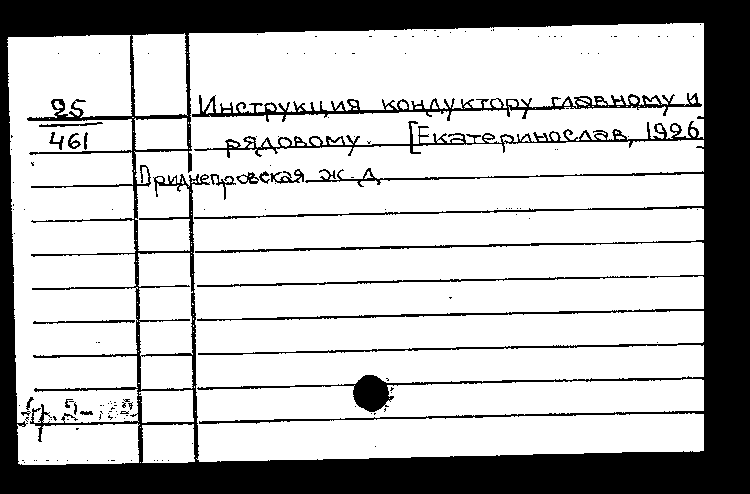 25
461
Инструкция кондуктору главному и
рядовому. [Екатеринослав, 1926
Приднепровская ж. д.